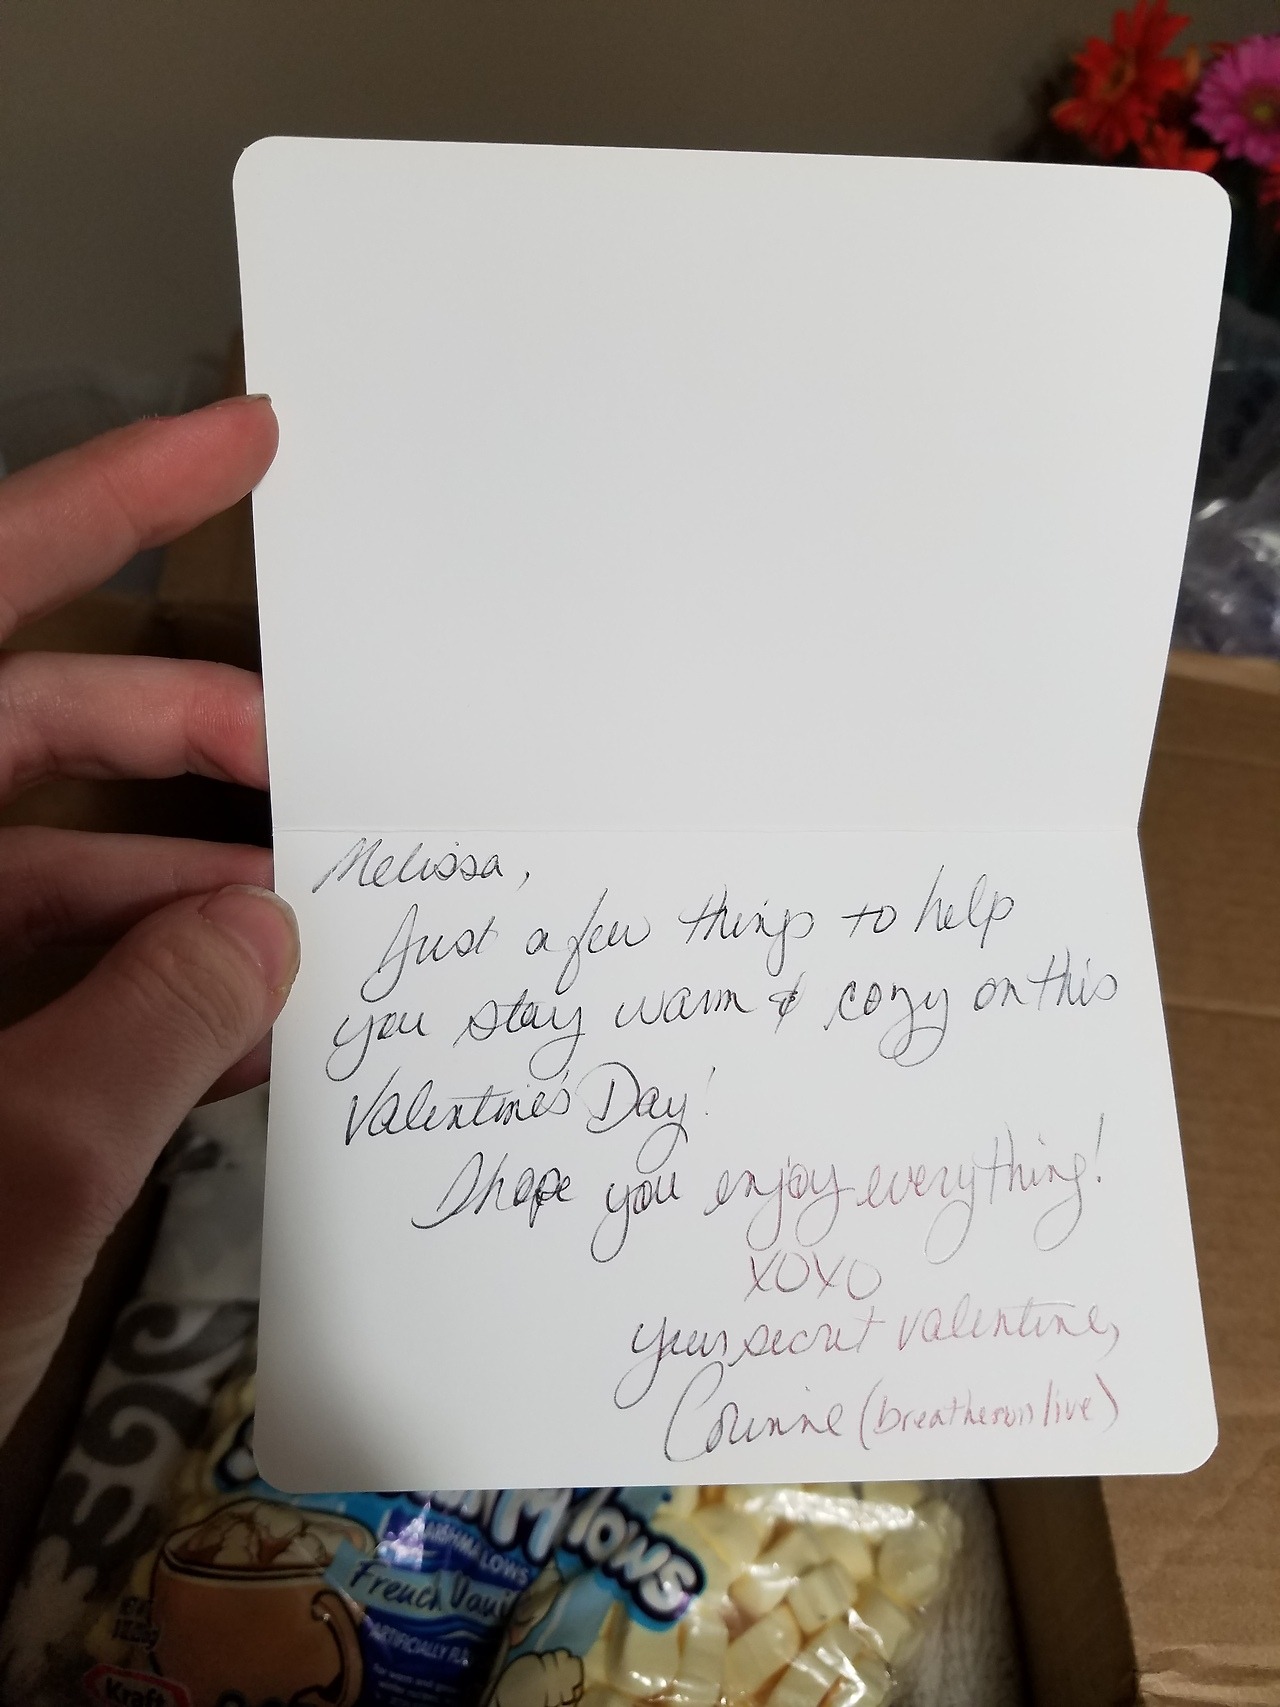 Melissa,
Just a few things to help
you stay warm & cozy on this
Valentine's Day!
I hope you enjoy everything!
XOXO
your secret valentine,
Corinne (breatherunlive)
Mallows
MARSHMALLOWS
French Vanil
ARTIFICIALLY FLA
Kraft